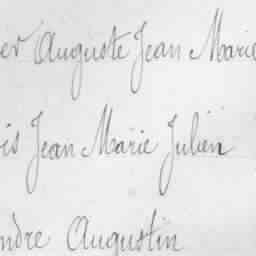 er Auguste Jean Marie
is Jean Marie Julien
ndre Augustin